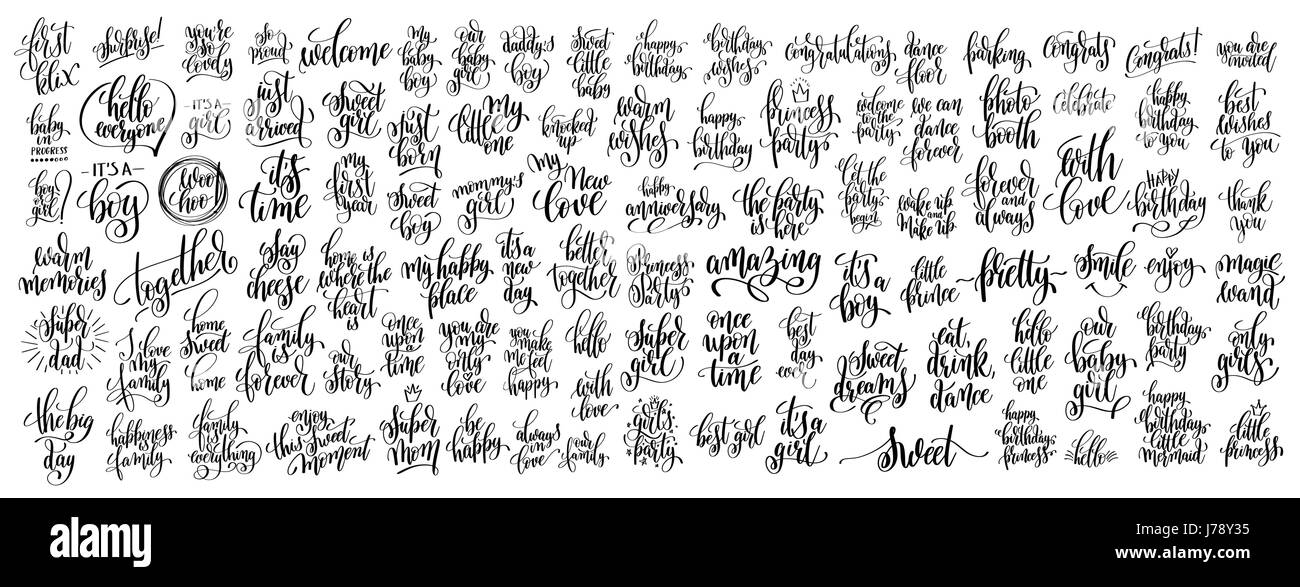 first
kick
surprise!
you're
so
lovely
so
proud
welcome
my
baby
boy
our
baby
girl
daddy's
boy
sweet
little
baby
happy
birthday
birthday
wishes
congratulations
dance
floor
parking
congrats
Congrats!
you are
invited
baby
in
PROGRESS
hello
everyone
-IT'S A-
girl
just
arrived
sweet
girl
just
born
my
little
one
knocked
up
warm
wishes
happy
birthday
princess
party
welcome
to the
party
we can
dance
forever
photo
booth
celebrate
happy
birthday
to you
best
wishes
to you
boy or
girl?
-IT'S A-
boy
woo
hoo!
it's
time
my
first
year
sweet
boy
mommy's
girl
my
new
love
happy
anniversary
the party
is here
let the
party
begin
wake up
and
make up
forever
and
always
with
love
HAPPY
birthday
thank
you
warm
memories
together
say
cheese
home is
where the
heart
is
my happy
place
it's a
new
day
better
together
Princess
Party
amazing
it's a
boy
little
prince
pretty
smile
enjoy
magic
wand
super
dad
I love
my
family
home
sweet
home
family
is
forever
our
story
once
upon a
time
you are
my
only
love
you make
me feel
happy
hello
with
love
super
girl
once
upon
a
time
best
day
ever
sweet
dreams
eat,
drink,
dance
hello
little
one
our
baby
girl
birthday
party
only
girls
the big
day
happiness
is
family
family
is
everything
enjoy
this sweet
moment
super
mom
be
happy
always
in
love
our
family
girl's
party
best girl
it's a
girl
sweet
happy
birthday
princess
hello
happy
birthday
little
mermaid
little
princess
alamy
alamy
Image ID: J78Y35
www.alamy.com